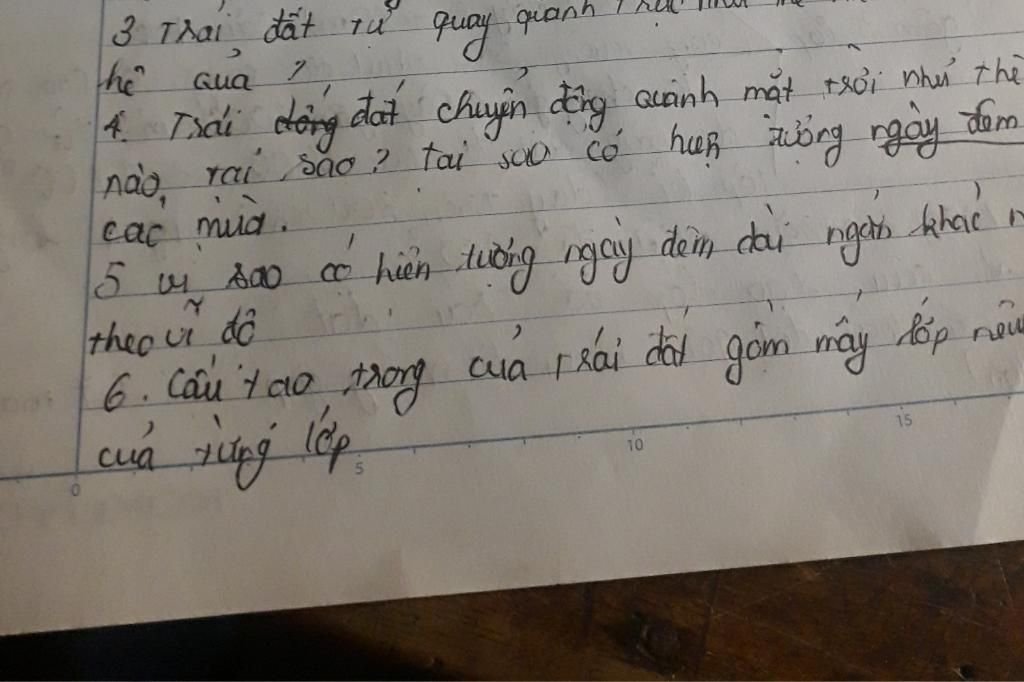 3 Trái đất tự quay quanh
hệ quả ?
4. Trái đất chuyển động quanh mặt trời như thế
nào, tại sao? tại sao có hiện tượng ngày đêm
các mùa.
5 vì sao có hiện tượng ngày đêm dài ngắn khác
theo vĩ độ
6. Cấu tạo trong của trái đất gồm mấy lớp nêu
của từng lớp
0 5 10 15